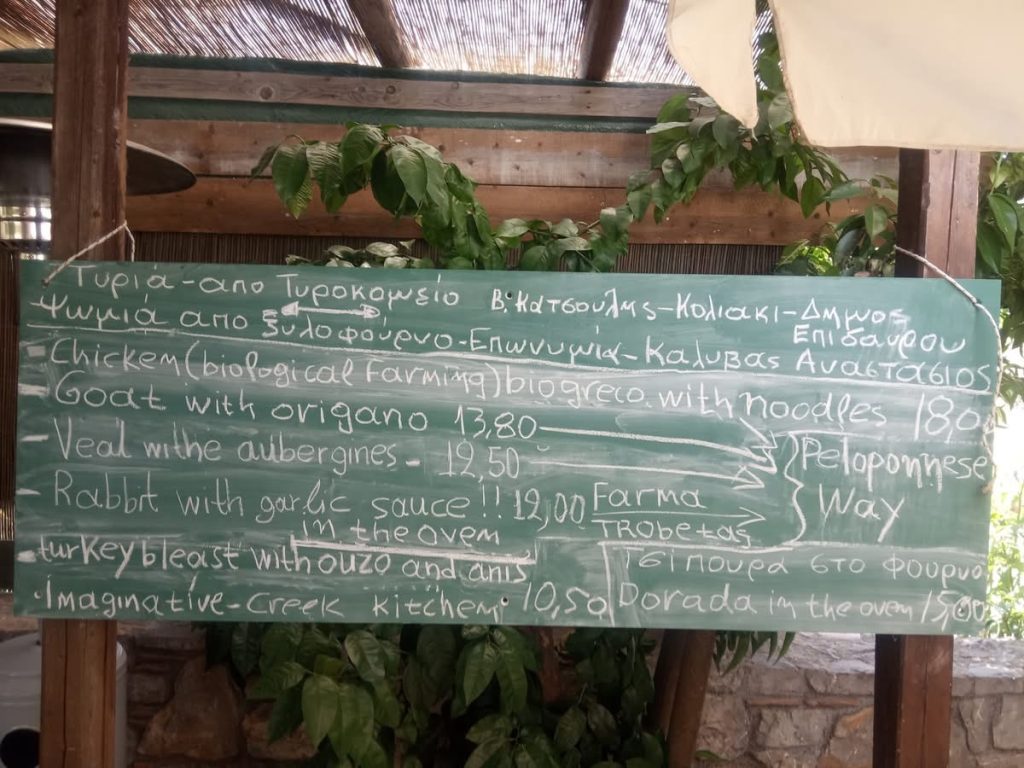 Τυριά - απο Τυροκομείο Β. Κατσουλης - Κολιακι - Δημος Επιδαυρου
Ψωμιά απο ξυλοφούρνο - Επωνυμία - Καλυβας Αναστασιος
- Chickem (biological Farming) biogreco. with noodles 18,0
- Goat with origano 13,80
- Veal withe aubergines - 12,50
Peloponnese
Way
- Rabbit with garlic sauce !! 12,00 Farma
in the ovem TRoBeTas
- turkey bleast with ouzo and anis
Τσιπουρα στο φουρνο
· Imaginative - Creek kitchem · 10,50
Dorada in the ovem 15,00